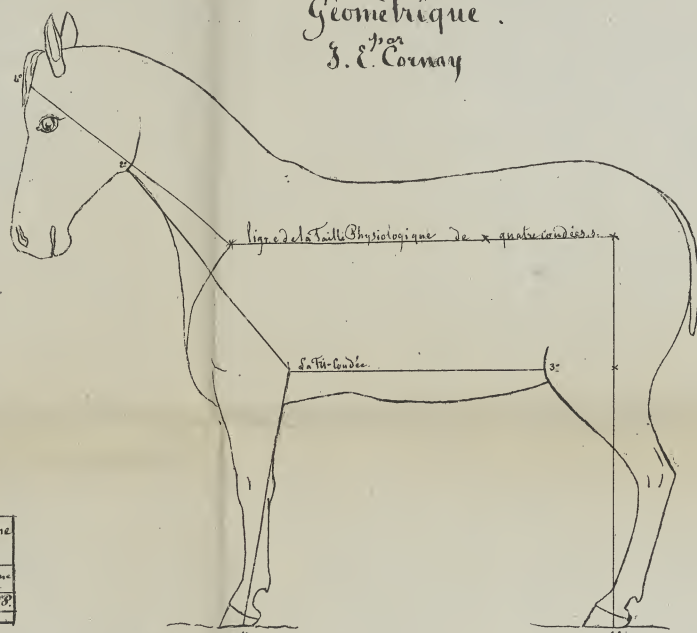 Géométrique.
par
J. E. Cornay
4e
2e
ligne de la Taille Physiologique de quatre coudées.
La Tri-Coudée.
3e